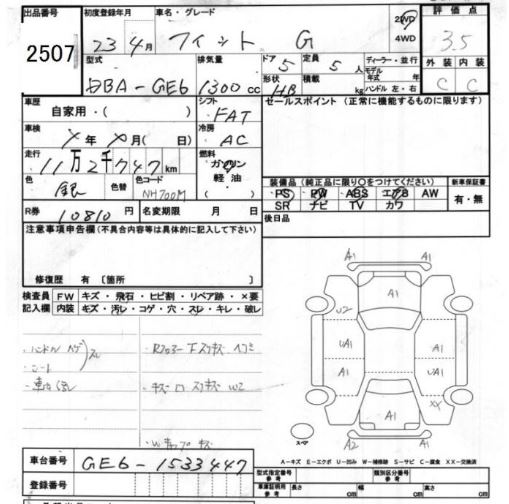 出品番号 初度登録年月 車名・グレード 評価点
2507 23年4月 フィット G 2WD 4WD 3.5
型式 排気量 ドア 定員 ディーラー・並行 外装 内装
DBA-GE6 1300cc 5 5人 モデル年式 年 C C
形状 HB 積載 kg ハンドル 左・右
車歴 シフト セールスポイント (正常に機能するものに限ります)
自家用・( ) FAT
車検 冷房
年 月( 日) AC
走行 燃料
11万2千747km ガソリン 軽油 ( )
色 銀 色替 色コード NH700M
装備品 (純正品に限り○をつけてください) 新車保証書
PS PW ABS エアB AW 有・無
SR ナビ TV カワ
R券 10810円 名変期限 月 日 後日品
注意事項申告欄(不具合内容等は具体的に記入して下さい)
修復歴 有 〔箇所 〕
検査員記入欄 FW キズ・飛石・ヒビ割・リペア跡・×要
内装 キズ・汚レ・コゲ・穴・スレ・キレ・破レ
・ハンドル
・シート
スレ
A1
A1 A1
U2
UA1 A1
A1 UA1
XX
A1
A2 A1
スペア
A-キズ E-エクボ U-凹み W-補修跡 S-サビ C-腐食 XX-交換済
車台番号 GE6-1533447
型式指定番号 参考 類別区分番号 参考
登録番号 車庫証明用 参考 長さ cm 幅 cm 高さ cm